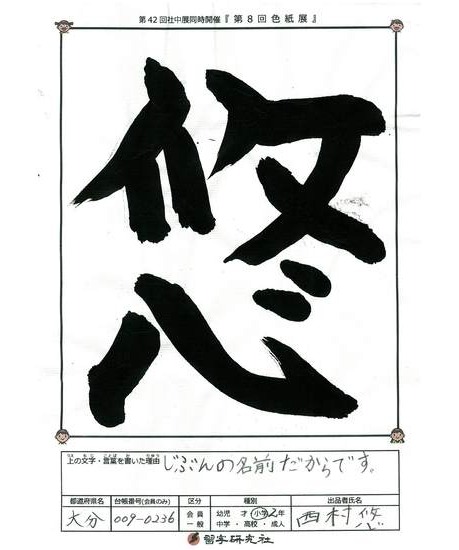 第42回社中展同時開催『第8回色紙展』
悠
上の文字・言葉を書いた理由 じぶんの名前だからです。
都道府県名 台帳番号(会員のみ) 区分 種別 出品者氏名
大分 009-0236 会員 一般 幼児 才 小学2年 中学・高校・成人 西村 悠
習字研究社